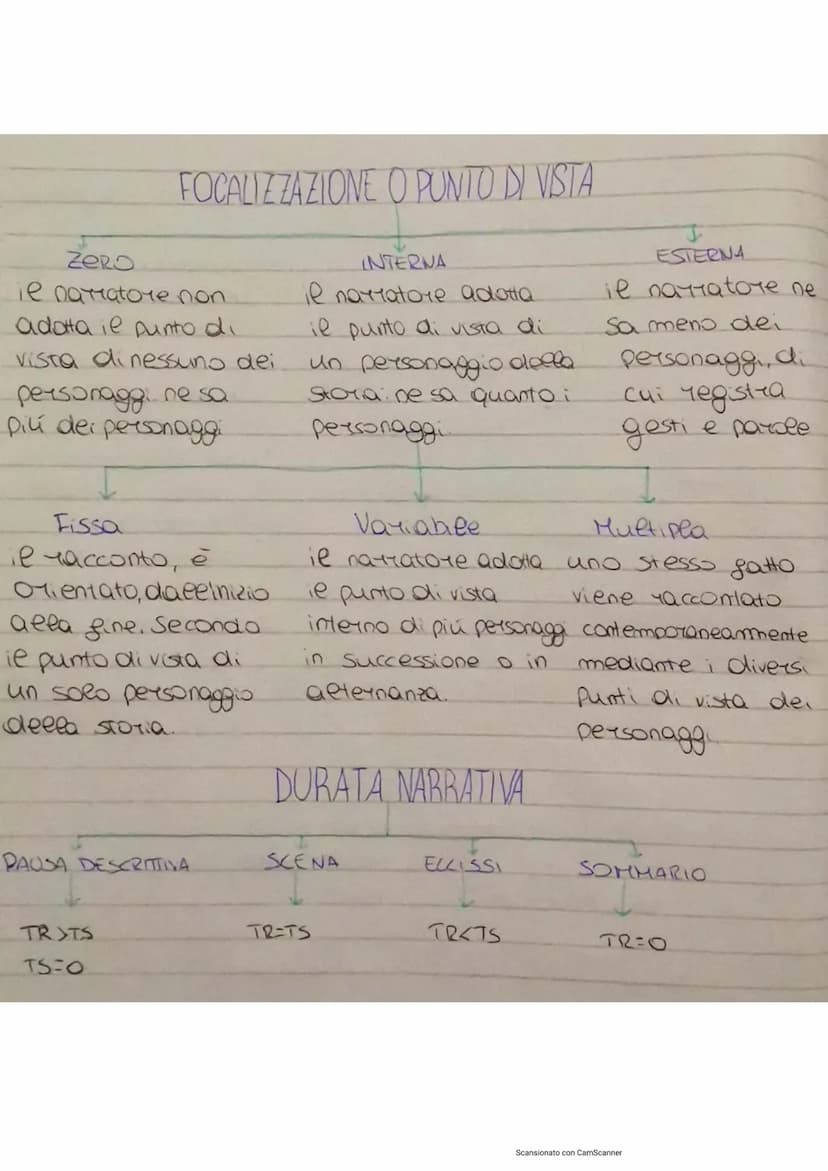 FOCALIZZAZIONE O PUNTO DI VISTA
ZERO
il narratore non
adotta il punto di
vista di nessuno dei
personaggi: ne sa
più dei personaggi
INTERNA
il narratore adotta
il punto di vista di
un personaggio della
storia: ne sa quanto i
personaggi.
ESTERNA
il narratore ne
sa meno dei
personaggi, di
cui registra
gesti e parole
Fissa
il racconto, è
orientato, dall'inizio
alla fine, secondo
il punto di vista di
un solo personaggio
della storia.
Variabile
il narratore adotta
il punto di vista
interno di più personaggi
in successione o in
alternanza.
Multipla
uno stesso fatto
viene raccontato
contemporaneamente
mediante i diversi
punti di vista dei
personaggi
DURATA NARRATIVA
PAUSA DESCRITTIVA
SCENA
ELLISSI
SOMMARIO
TR>TS
TS=0
TR=TS
TR<TS
TR=0
Scansionato con CamScanner